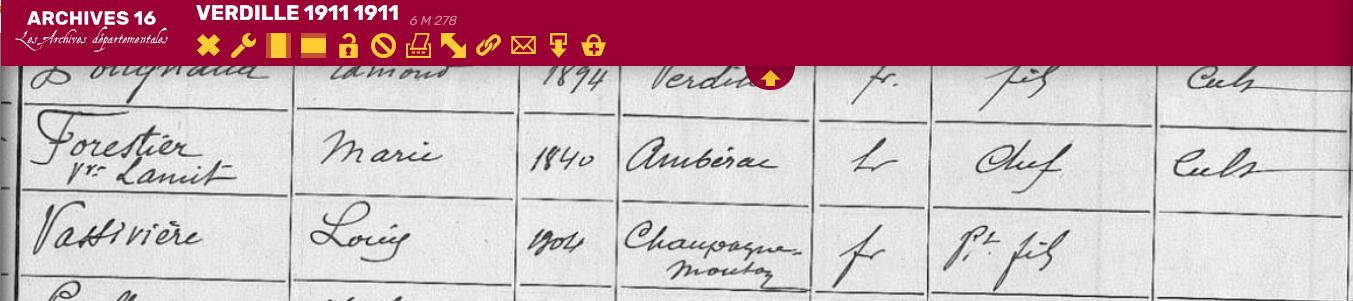 ARCHIVES 16
Les Archives départementales
VERDILLE 1911 1911 6 M 278
Edmond 1894 Verdille fr. fils Cult
Forestier Marie 1840 Ambérac fr Chef Cult
Vve Lamit
Vassivière Louis 1904 Champagne- fr Pt fils
Mouton